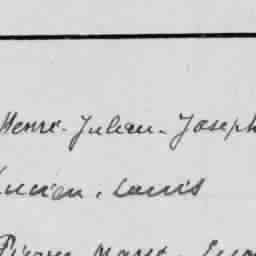 Henri-Julien-Joseph
Lucien, Louis
Pierre